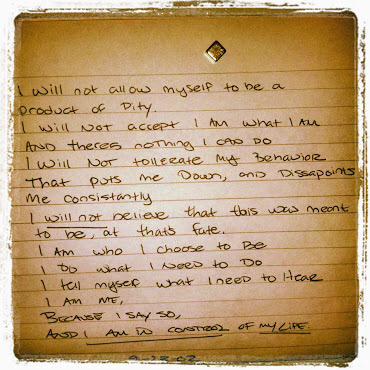 I will not allow myself to be a
product of Pity.
I will Not accept I Am what I Am
AND theres nothing I CAN DO
I will Not tollerate My Behavior
That puts me Down, and Dissapoints
Me consistantly
I will not believe that this was meant
to be, or thats fate.
I Am who I choose to Be
I do what I Need to Do
I tell myself what I need to Hear
I AM ME,
BECAUSE I SAY SO,
AND I AM IN CONTROL OF MY LIFE.